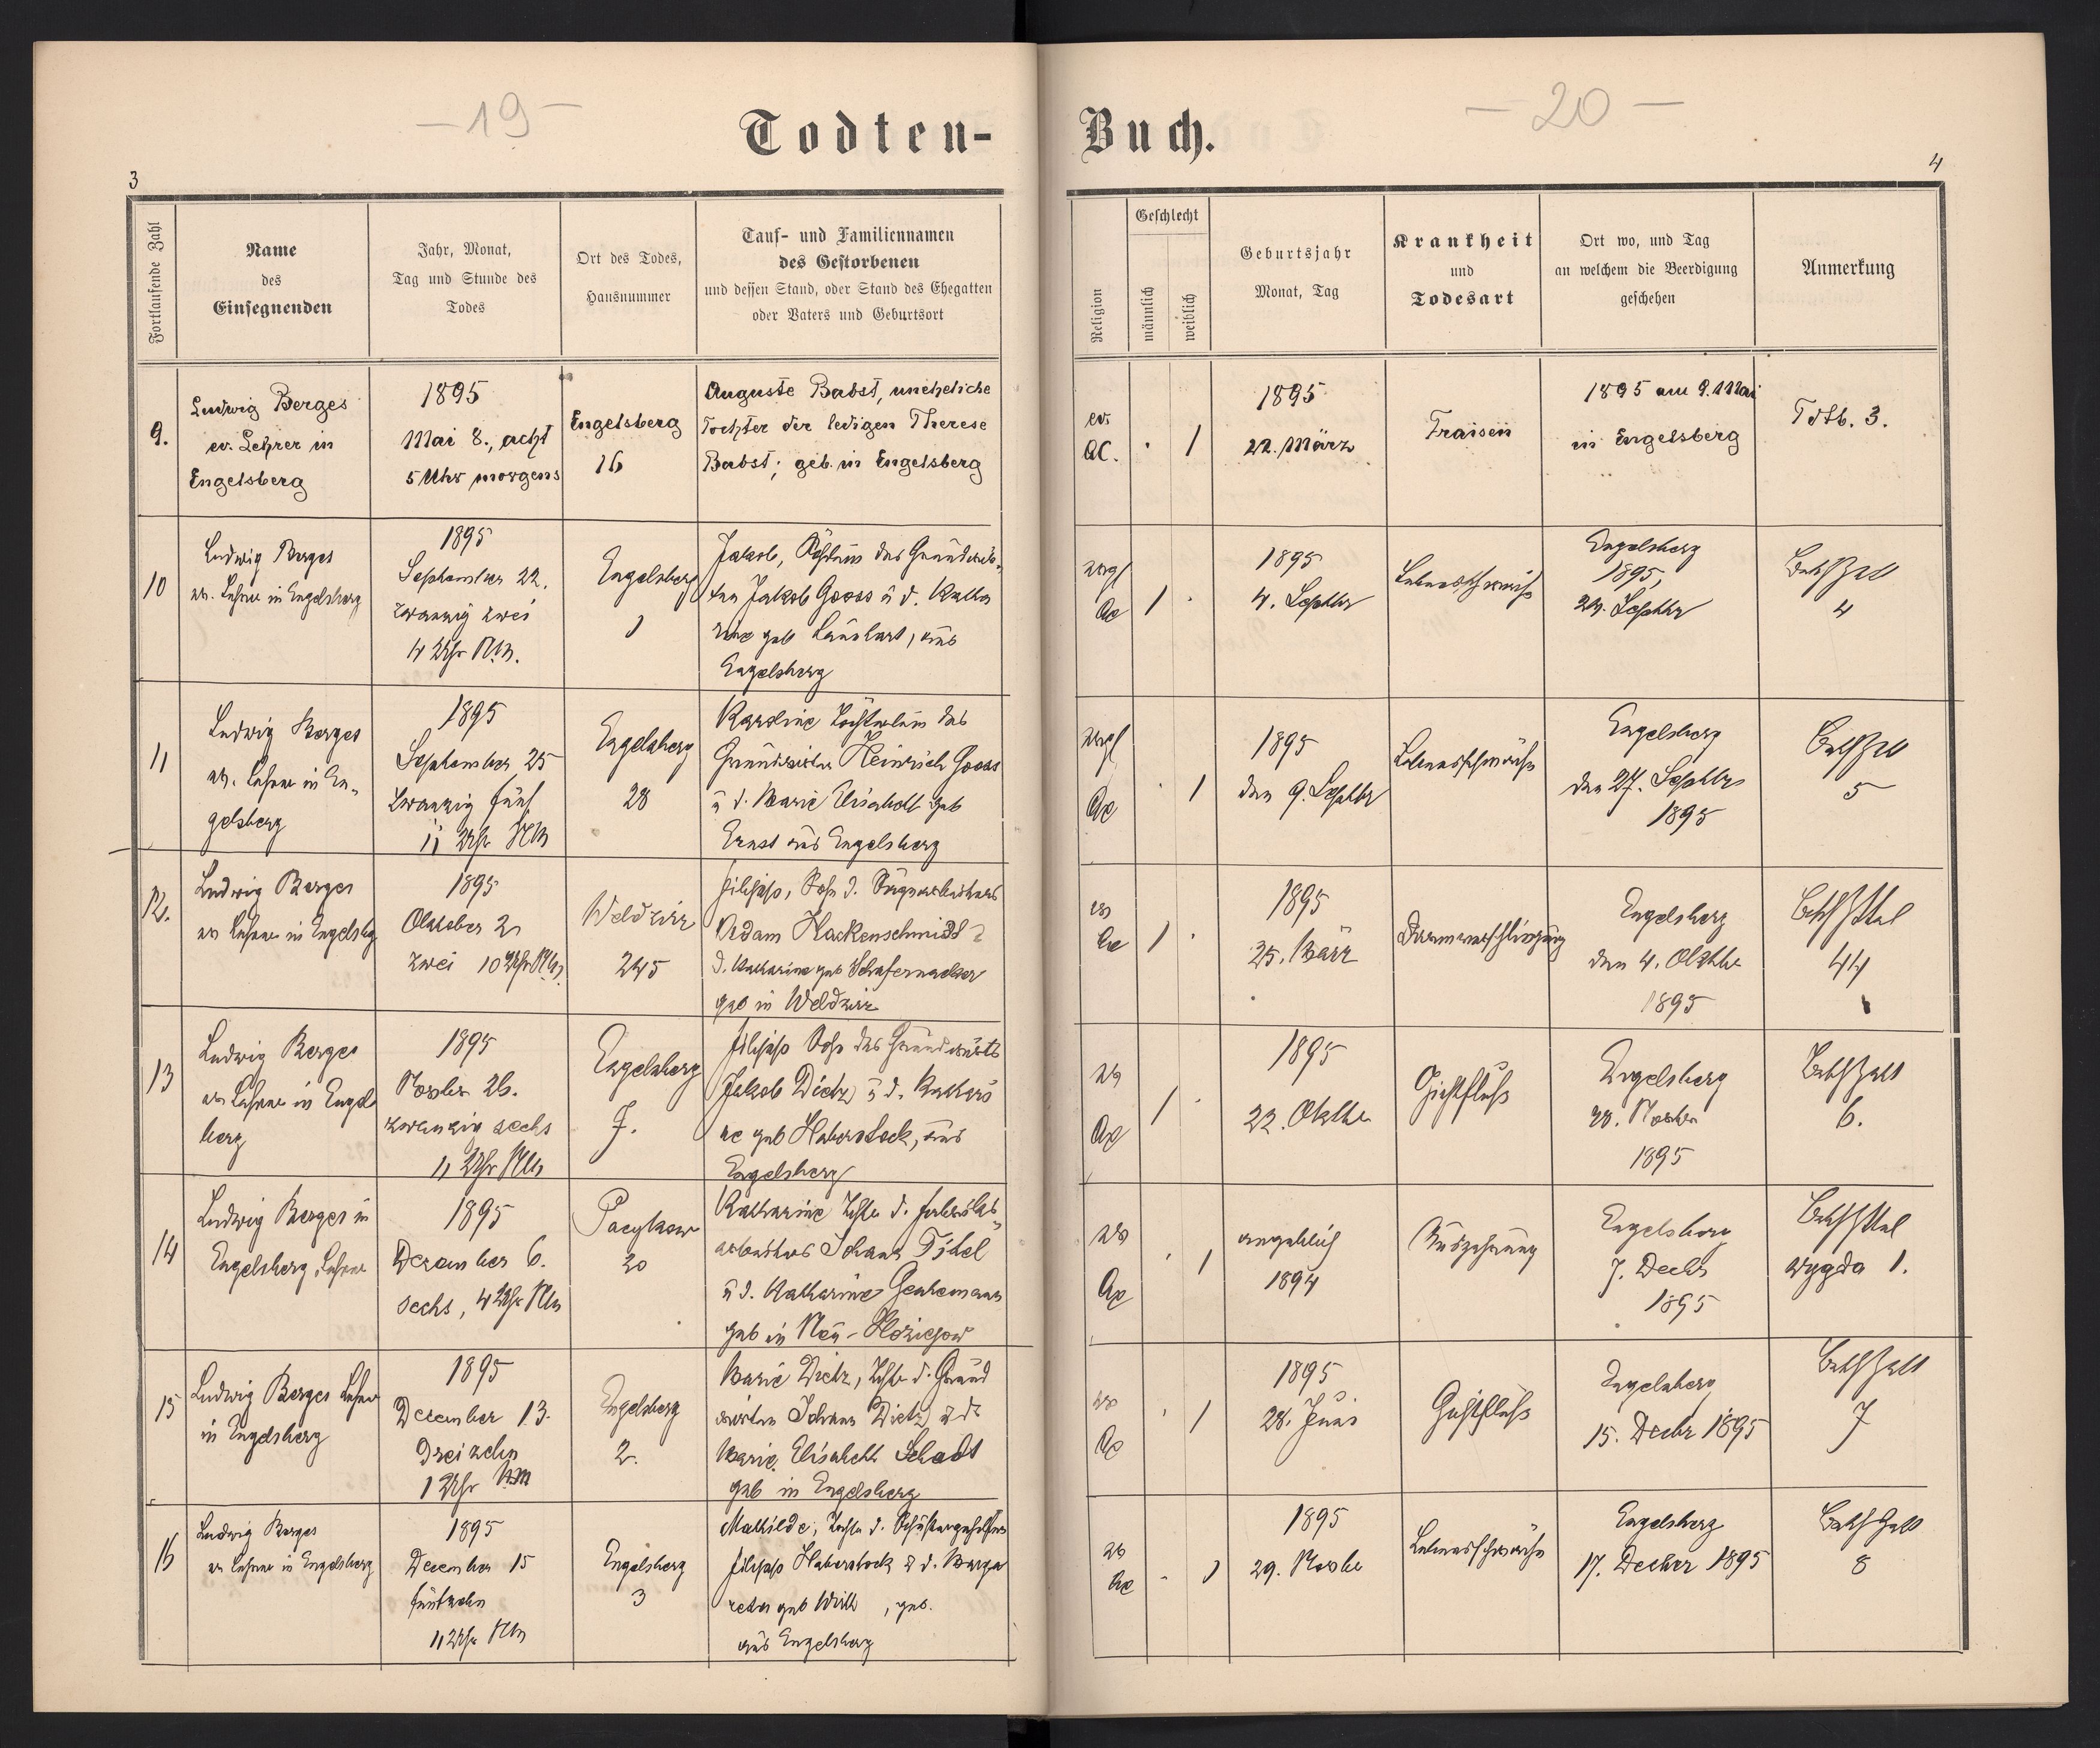 -19-
Todten-
3
Fortlaufende Zahl
Name
des
Einsegnenden
Jahr, Monat,
Tag und Stunde des
Todes
Ort des Todes,
Hausnummer
Tauf- und Familiennamen
des Gestorbenen
und dessen Stand, oder Stand des Ehegatten
oder Vaters und Geburtsort
9.
Ludwig Berges
ev. Lehrer in
Engelsberg
1895
Mai 8., acht
5 Uhr morgens
Engelsberg
16
Auguste Babst, uneheliche
Tochter der ledigen Therese
Babst; geb. in Engelsberg
10
Ludwig Berges
ev. Lehrer in Engelsberg
1895
September 22.
zwanzig zwei
4 Uhr NM.
Engelsberg
1
Jakob, Söhnlein des Grundwir-
ten Jakob Gooss u d. Katha
rine geb Launhart, aus
Engelsberg
11
Ludwig Berges
ev. Lehrer in En-
gelsberg
1895
September 25
zwanzig fünf
11 Uhr NM
Engelsberg
28
Karoline Töchterlein des
Grundwirten Heinrich Gooss
u d. Marie Elisabeth geb
Ernst aus Engelsberg
12.
Ludwig Berges
ev Lehrer in Engelsbg
1895
Oktober 2
zwei 10 Uhr NM
Weldzirz
245
Filipp, Sohn d. Sägearbeiters
Adam Hackenschmidt
d. Katharine geb Schafernacker
geb in Weldzirz
13
Ludwig Berges
ev Lehrer in Engels
berg
1895
Novber 26.
zwanzig sechs
11 Uhr NM
Engelsberg
7.
Filipp Sohn des Grundwirts
Jakob Dietz u d. Kathari
ne geb Haberstock, aus
Engelsberg
14
Ludwig Berges in
Engelsberg, Lehrer
1895
Dezember 6.
sechs, 4 Uhr NM
Pacykow
20
Katharine Tchtr d. Fabriks-
arbeiters Johann Titel
u d. Katharine Genkemann
geb in Neu-
15
Ludwig Berges Lehrer
in Engelsberg
1895
Dezember 13.
dreizehn
1 Uhr NM
Engelsberg
2.
Marie Dietz, Tchtr d. Grund
wirten Johann Dietz u dr
Marie Elisabeth Schadt
geb in Engelsberg
16
Ludwig Berges
ev Lehrer in Engelsberg
1895
Dezember 15
fünfzehn
11 Uhr NM
Engelsberg
3
Mathilde, Tochtr d. Schustergehilfen
Filipp Haberstock u d. Marga
retha geb Wirth, geb.
aus Engelsberg
-20-
Buch.
4
Religion
Geschlecht
männlich
weiblich
Geburtsjahr
Monat, Tag
Krankheit
und
Todesart
Ort wo, und Tag
an welchem die Beerdigung
geschehen
Anmerkung
ev.
AC.
1
1895
22. März
Fraisen
1895 am 9. Mai
in Engelsberg
Tdtb. 3.
evgl
Ac
1
1895
4. Septbr
Lebensschwäche
Engelsberg
1895,
24. Septbr
4
evgl
Ac
1
1895
den 9. Septbr
Lebensschwäche
Engelsberg
den 27. Septbr
1895
5
ev
Ac
1
1895
25. März
Darmverschlingung
Engelsberg
den 4. Oktbr
1895
44
ev
Ac
1
1895
22. Oktbr
Gichtfluß
Engelsberg
28. Novbr
1895
6.
ev
Ac
1
angeblich
1894
Auszehrung
Engelsberg
7. Decbr
1895
Wygda 1.
ev
Ac
1
1895
28. Juni
Gichtfluß
Engelsberg
15. Decbr 1895
7
ev
Ac
1
1895
29. Novbr
Lebensschwäche
Engelsberg
17. Decber 1895
8